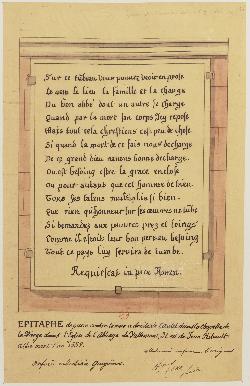 Sur ce tableau vous pouvez veoir en prose
Le nom le lieu la famille et la charge
Du bon abbé dont un autre se charge
Quand par la mort son corps icy repose
Mais tout cela chrestiens est peu de chose
Si quand la mort de ce fais nous descharge
De ce grand dieu navons bonne descharge
Ou est besoing estre la grace enclose
Ou pour autant que cet homme de bien
ses talens multiplia si bien
Que rien qu'honneur sur ses œuvres ne tube
Si demandez aux pauvres pres et loings
Comme il estoit leur bon pere au besoing
Tout ce pays luy servira de tumbe.
Requiescat in pace Amen.
EPITAPHE de pierre contre le mur à droite de l'Autel dans la Chapelle de
la Vierge dans l'Eglise de l'Abbaye de Il est de Jean
Abbé mort l'an 1559.